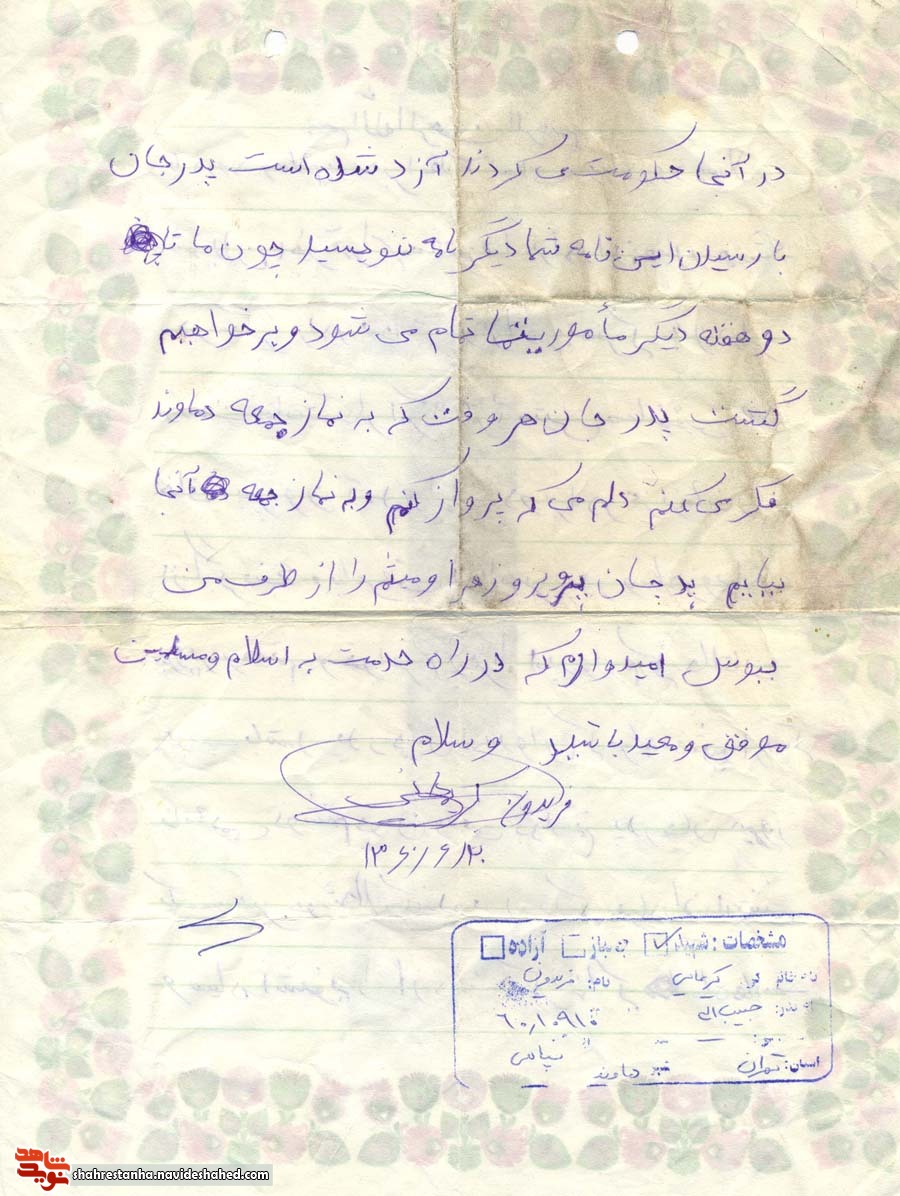 در آنجا حکومت می کردند آزد شده است پدر جان
با رسیدن این نامه شما دیگر نامه ننویسید چون ما تا
دو هفته دیگر مأموریتما تمام می شود و بر خواهیم
گشت پدر جان هر وقت که به نماز جمعه دماوند
فکر می کنم دلم می که پرواز کنم و به نماز جمعه آنجا
بیایم پدر جان پرویز و زهرا و میثم را از طرف من
ببوس امیدوارم که در راه خدمت به اسلام و مسلمین
موفق و معید باشید و سلام
فریدون کرمانی
۱۳۶۰/۶/۲۰
مشخصات: شهید جانباز آزاده
نام خانوادگی: کرمانی نام: فریدون
نام پدر: حبیب اله
استان: تهران شهر دماوند
نوید شاهد
shahrestanha.navideshahed.com